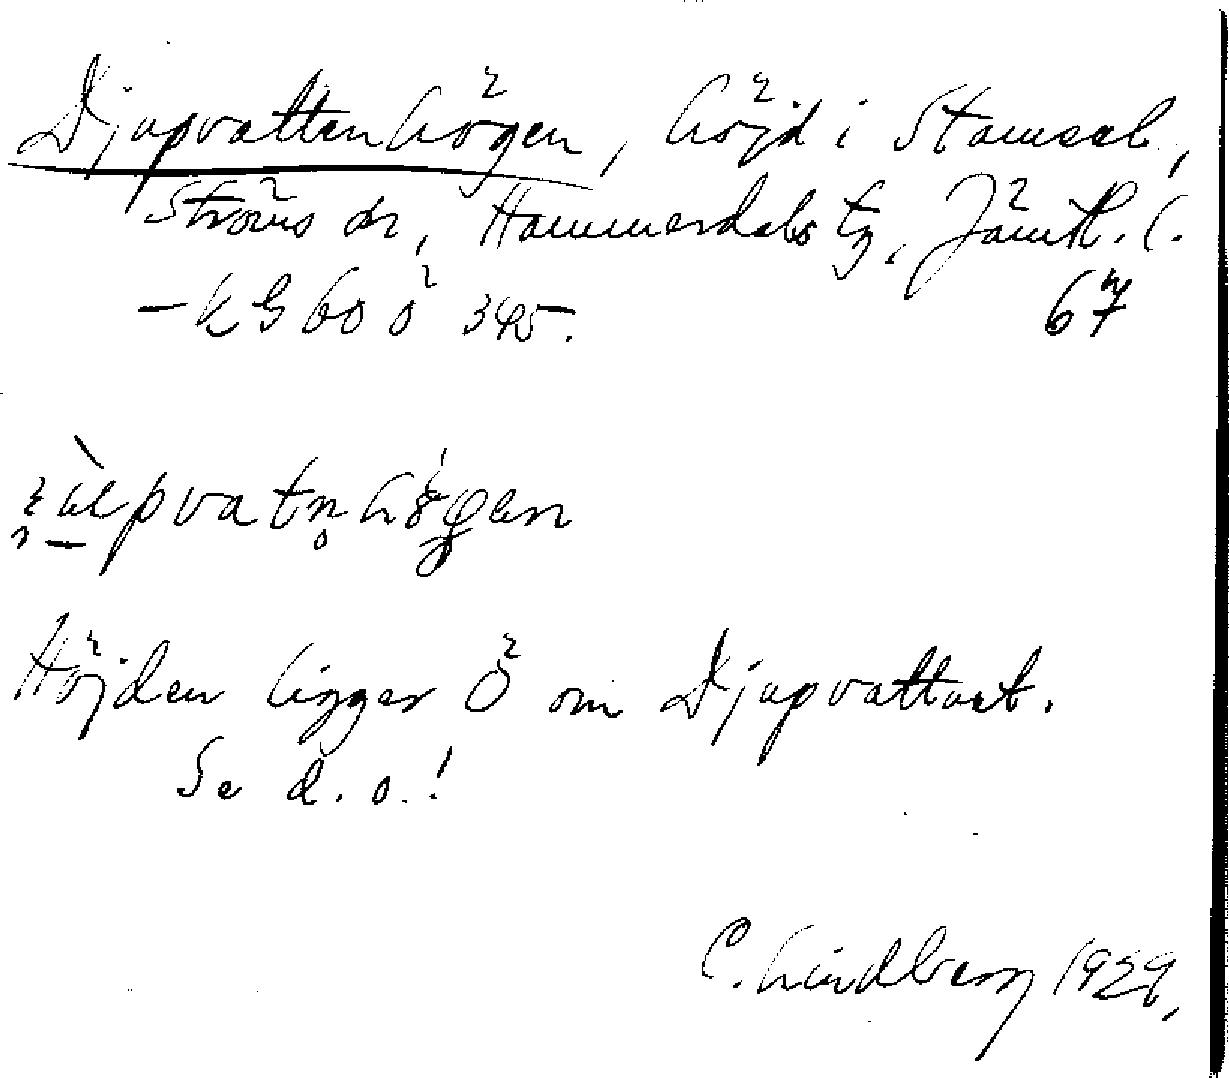 Djupvattenhögen, höjd i Stamsele,
Ströms sn, Hammerdals tg, Jämtl. l.
— KG 60 ö 395. 67
vatn högen
Höjden ligger Ö om Djupvattnet.
Se d. o.!
C. Lindberg 1929.